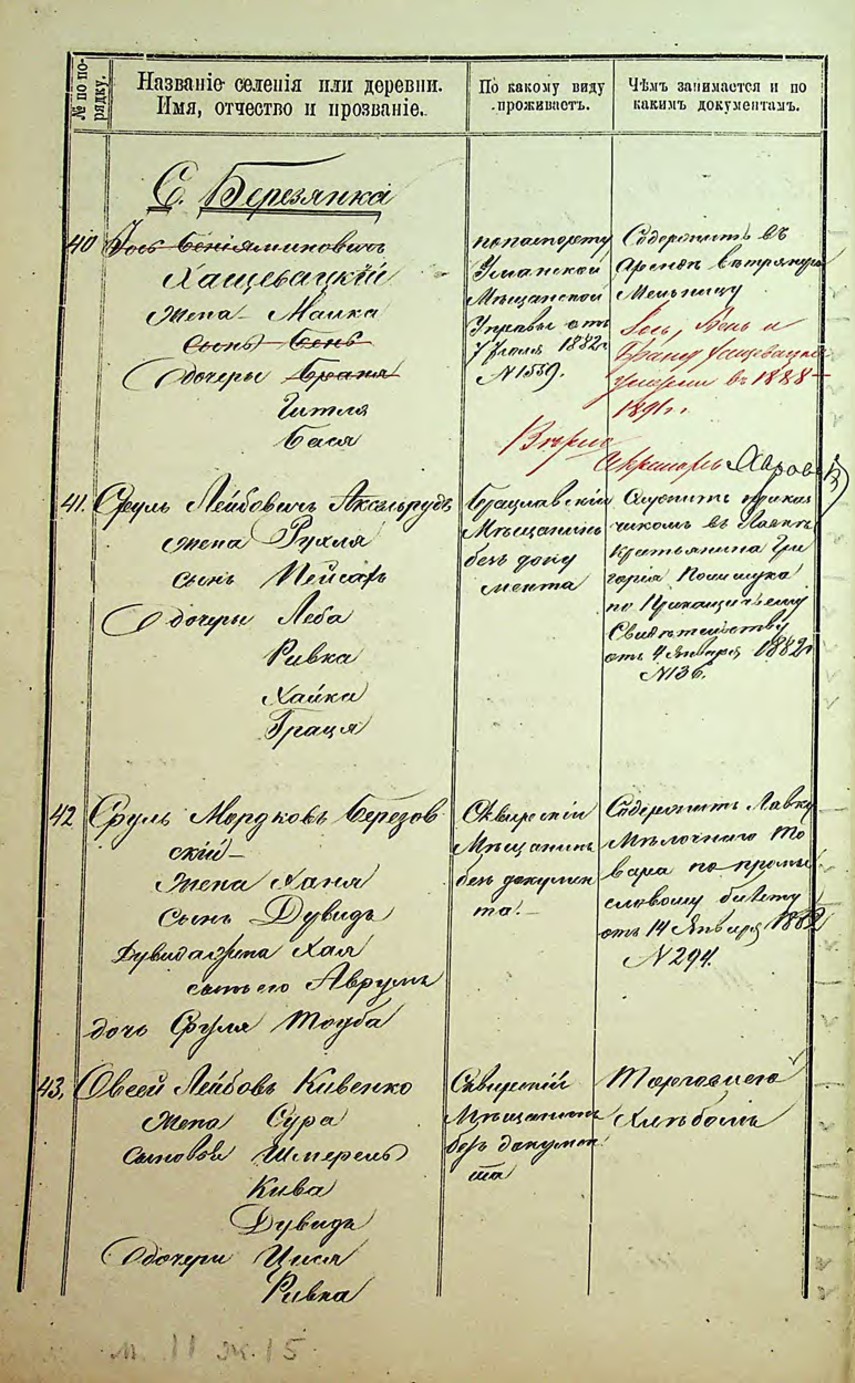 № по по-
рядку.
Названіе селенія или деревни.
Имя, отчество и прозваніе.
По какому виду
проживаетъ.
Чѣмъ занимается и по
какимъ документамъ.
С. Березянка
40 Іось Беніяминовичъ
Хащевацкій
жена Малка
сынъ Бень
дочеры Браня
Гитля
Бася
по паспорту
Уманской
Мѣщанской
Управы отъ
7 Іюля 1882 г.
№ 1559.
Содержитъ въ
арендѣ вѣтряную
мельницу
Іось, Бень и
Браня Хащевацкіе
умерли въ 1888–
1891 г.
Вѣрно
Секретарь
41. Сруль Лейбовичъ Аксельрудъ
жена Рухля
сынъ Пейсахъ
дочеры Леба
Ривка
Хайка
Граця
Брацлавскій
Мѣщанинъ
безъ доку
мента
Служитъ приказ
чикомъ въ лавкѣ
Крестьянина Гри
горія Полищука
по Приказчичьему
Свидѣтельству
отъ 4 Января 1882 г
№ 136.
42 Сруль Мордковъ Березов
скій
жена Ханя
сынъ Дувидъ
Дувида жена Хая
сынъ его Аврумъ
дочь Сруля Тоуба
Сквирскій
Мѣщанинъ
безъ докумен
та.
Содержитъ лавку
мѣлочнаго то
вара по промы
словому билету
отъ 14 Января 1882
№ 294.
43. Овсей Лейбовъ Кивенко
жена Сура
сыновья Шмерель
Кива
Дувидъ
дочери Цися
Ривка
Сквирскій
Мѣщанинъ
безъ докумен
та
Торговлею
хлѣбомъ
м. 11 ж. 15